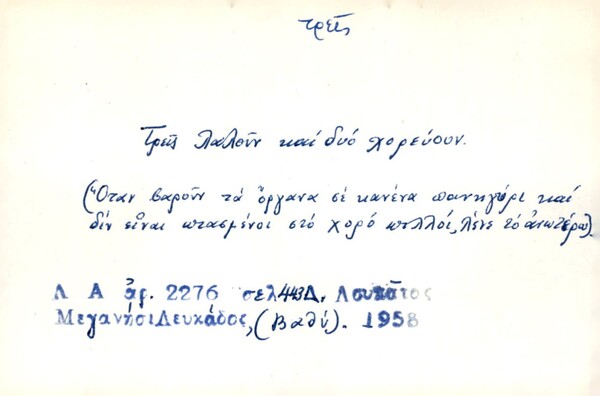 τρεῖς
Τρεῖς λαλοῦν καί δυό χορεύουν.
(Ὅταν βαροῦν τά ὄργανα σέ κανένα πανηγύρι καί
δέν εἶναι πιασμένοι στό χορό πολλοί, λένε τό ἀνωτέρω).
Λ Α ἀρ. 2276 σελ. 443Δ. Λουκᾶτος
Μεγανήσι Λευκάδος, (Βαθύ). 1958